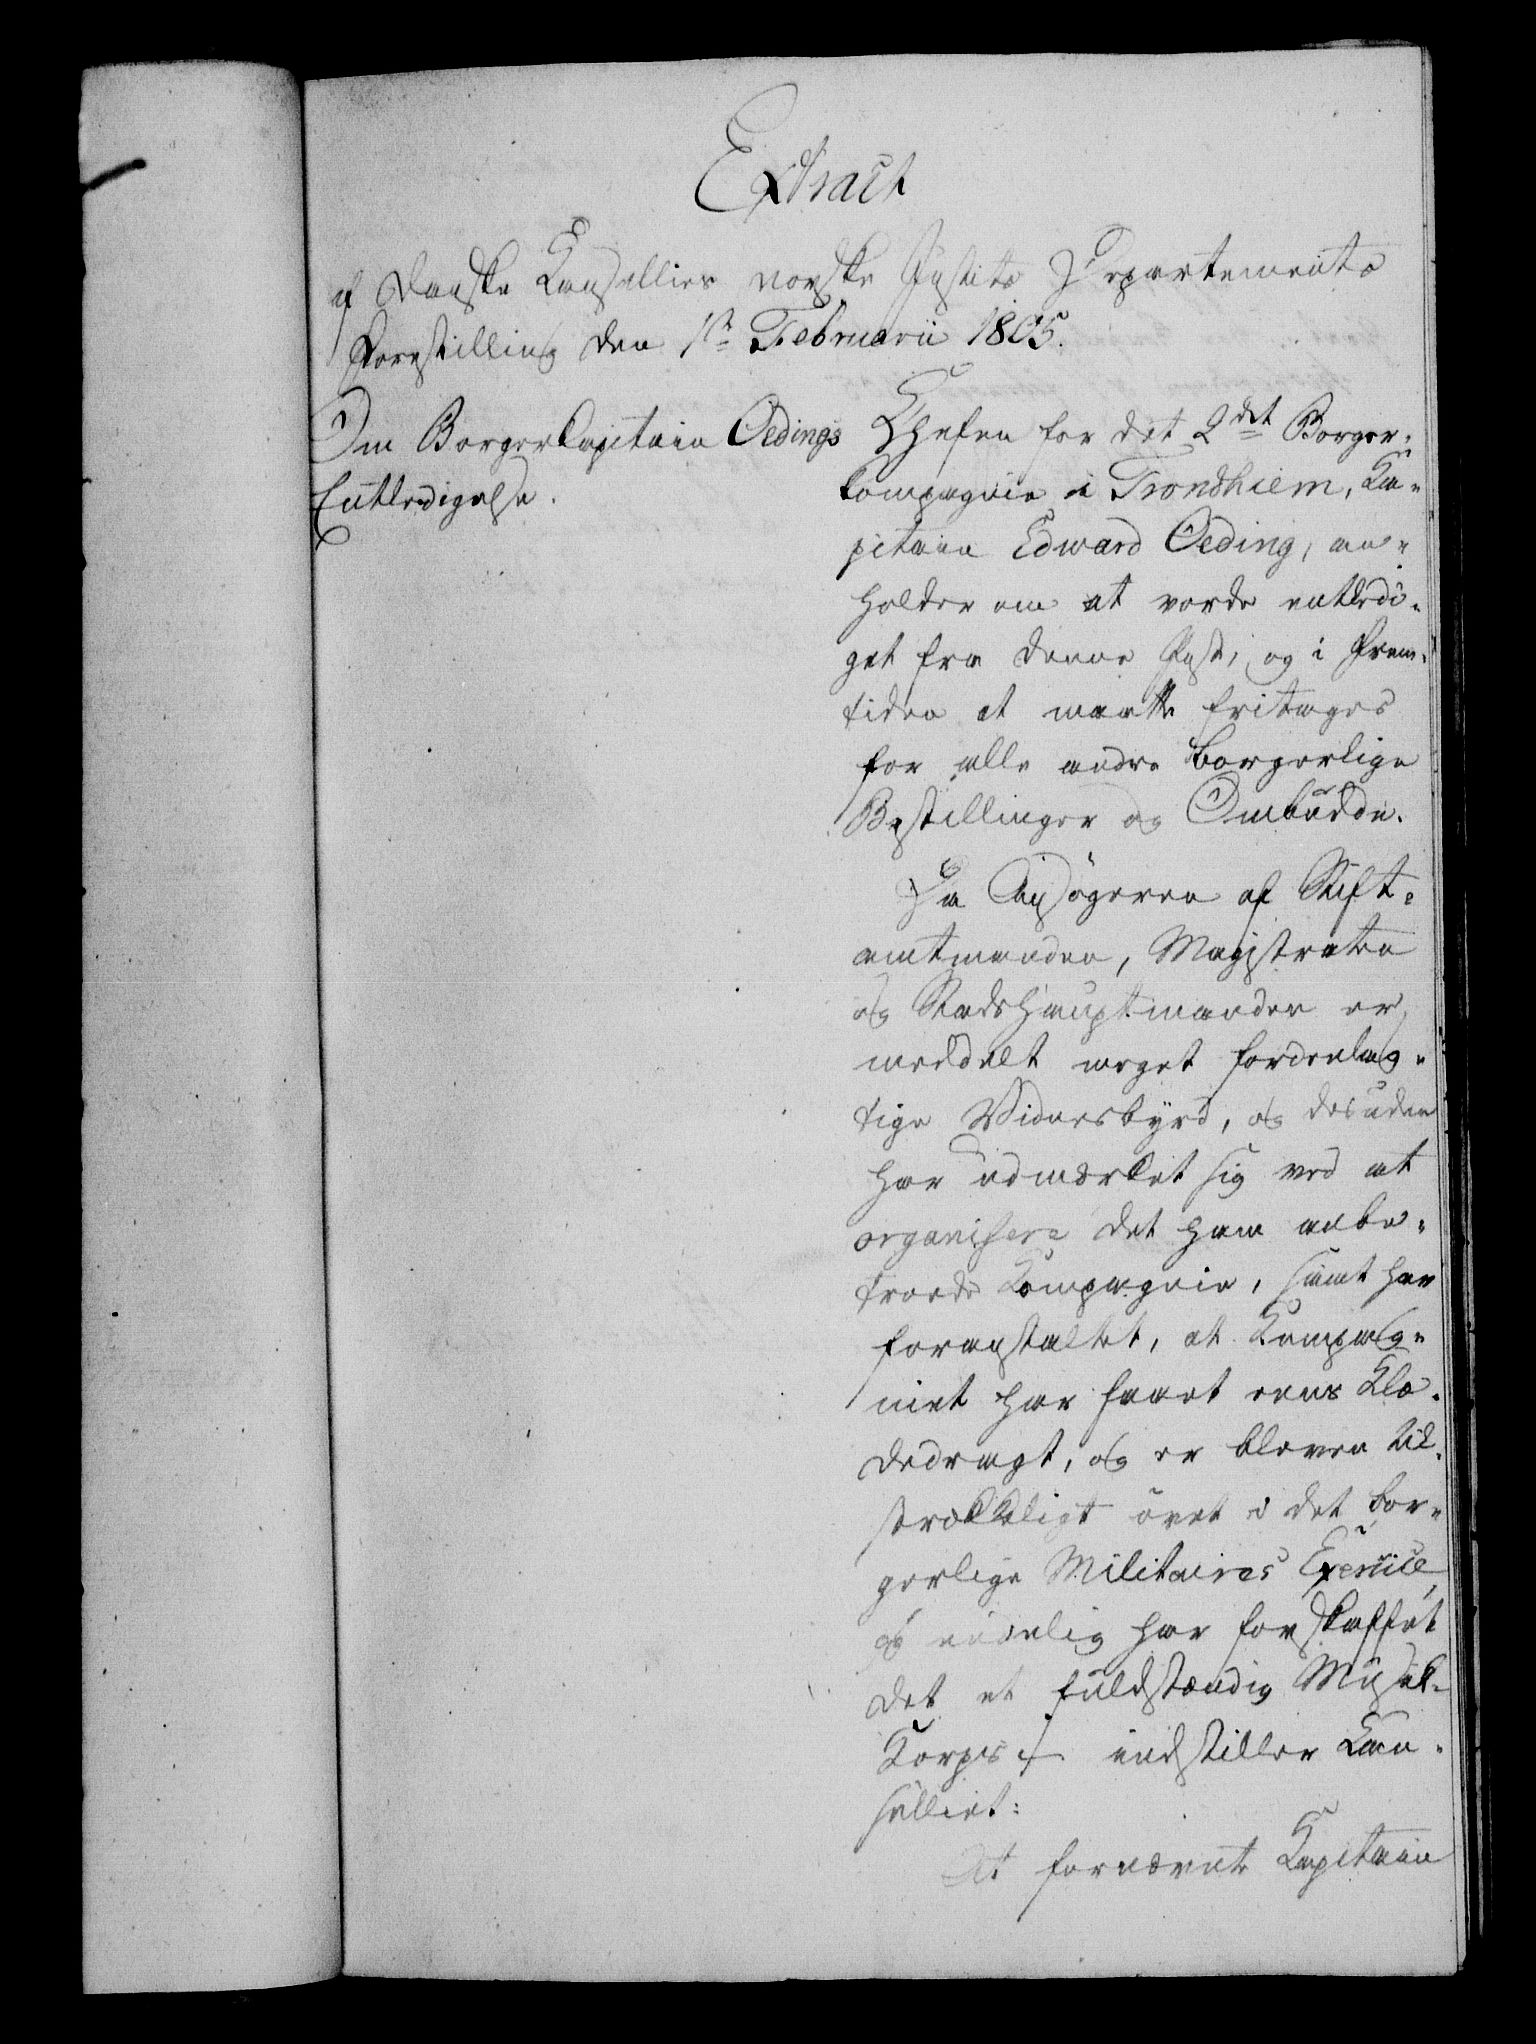 Extract
af Danske Kansellies norske Justits Departements
Forestilling den 1ste Februarii 1805.
Om Borger Capitain Oedings
Entledigelse.
Chefen for det 2det Borger-
kompagnie i Trondhiem, Ka-
pitain Edward Oeding, an-
holder om at vorde entledi-
get fra denne Post, og i Frem-
tiden at maatte fritages
for alle andre borgerlige
Bestillinger og Ombudde.
Da Ansøgeren af Stift-
amtmanden, Magistraten
og Stadshauptmanden er
meddelt meget fordeelag-
tige Vidnesbyrd, og desuden
har udmærket sig ved at
organisere det ham anbe-
troede Kompagnie, samt har
foranstaltet, at Kompag-
niet har faaet eens Klæ-
dedragt, og er bleven til-
strækkeligt øvet i det bor-
gerlige Militaires Exersice,
og endelig har forskaffet
det et fuldstændig Musik-
Korps indstiller Kan-
selliet:
At fornævnte Kapitain